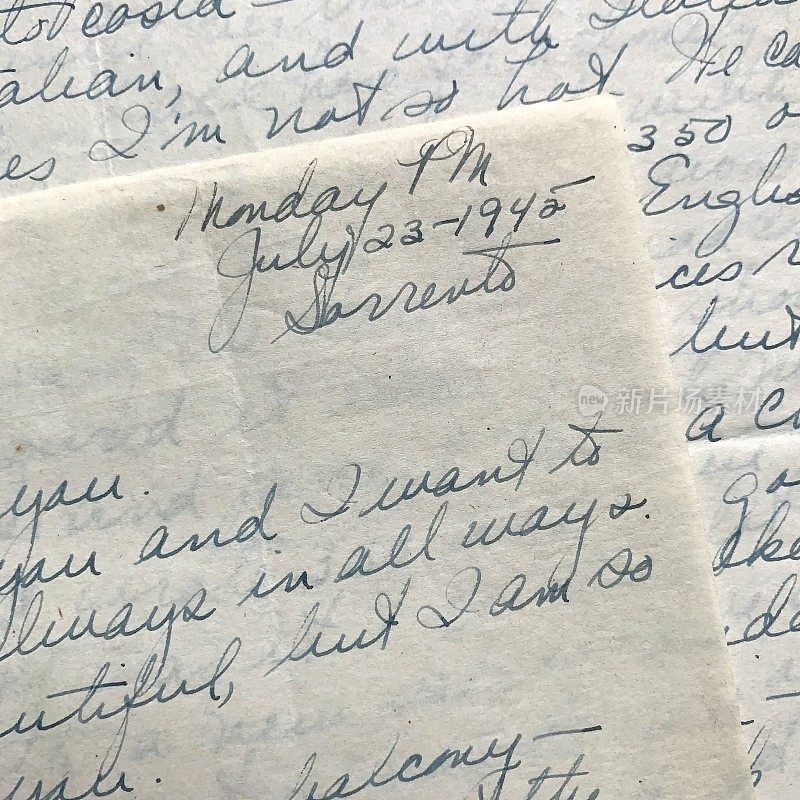 to costa —
alian, and with Italia
es I'm not so hot. He ca
350 o
Englis
ices
but
a
go
Monday PM
July 23-1945
Sorrento
you.
you and I want to
always in all ways.
utiful, but I am so
you. balcony —
the
new 新片场素材